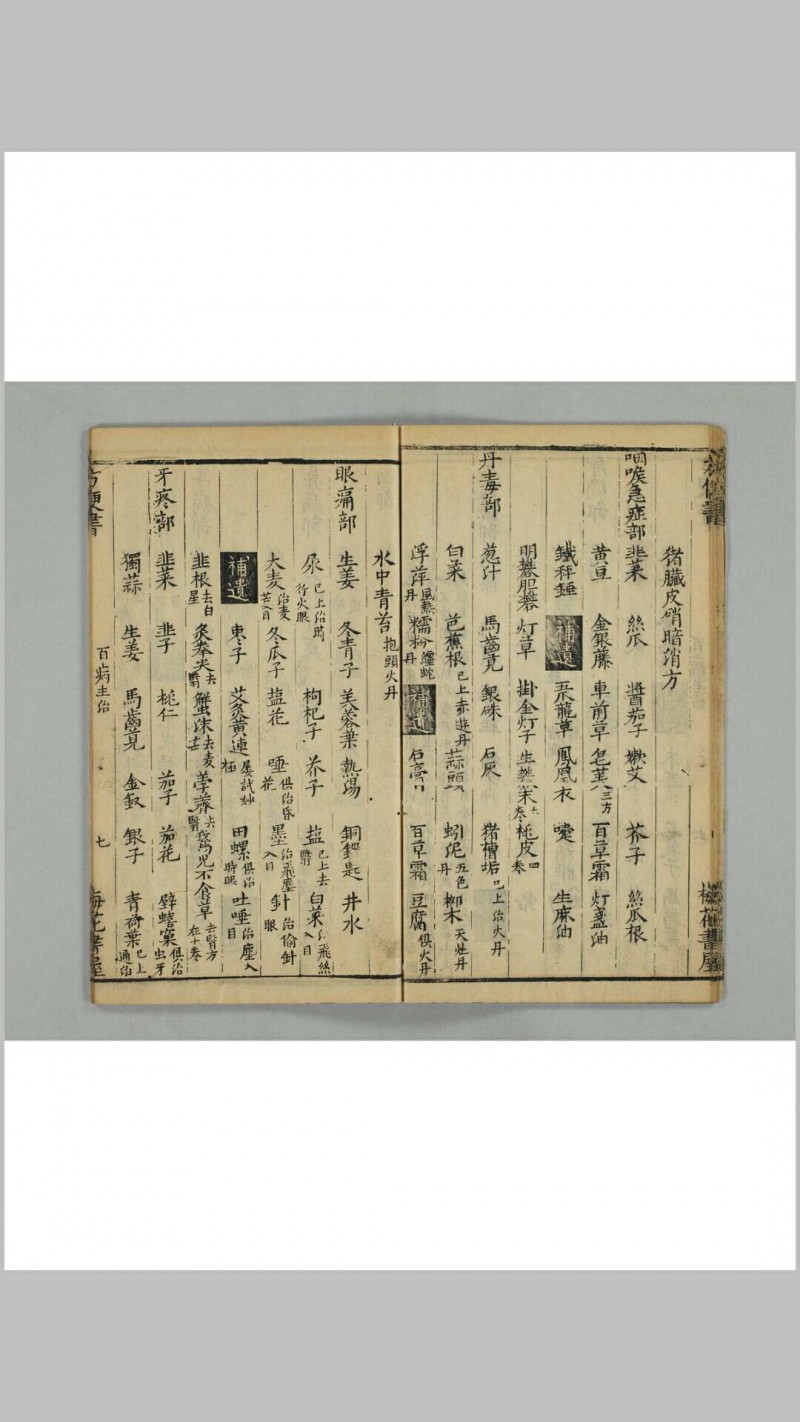 猪臟皮硝暗消方
咽喉急症部 韭菜 絲瓜 醬茄子 嫩艾 芥子 絲瓜根
黄豆 金銀藤 車前草 皂莢三方 百草霜 灯盞油
鐵秤錘 補遺 鳳凰衣 生麻油
明礬肥礬 灯草 掛金灯子 桃皮四卷
丹毒部 葱汁 馬齒莧 銀硃 石灰 猪槽垢已上治火丹
白菜 芭蕉根已上赤遊丹 蒜頭 蚓泥五色丹 柳木天灶丹
浮萍風熱丹 糯粉纏蛇丹 補遺 石膏 百草霜 豆腐俱火丹
水中青苔抱頭火丹
眼痛部 生姜 冬青子 芙蓉葉 熱湯 銅匙 井水
尿已上治時行火眼 枸杞子 芥子 盐已上去翳 白菜飛絲入目
大麦治麦芒入目 冬瓜子 盐花 唾俱治昏花 墨治飛塵入目 針治偷針眼
補遺 枣子 艾灸黄連屡試妙極 田螺俱治時眼 吐唾治塵入目
韭根去白星 灸拳尖去翳 蟹沫去麦芒 荸薺去翳 鵞児不食草去翳方在十卷
牙疼部 韭菜 韭子 桃仁 茄子 茄花 壁蟢窠俱治虫牙
獨蒜 生姜 馬齒莧 金釵 銀子 青荷葉已上通治
方便書 百病主治 七 梅花書屋